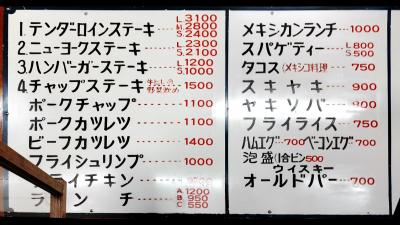 1.テンダーロインステーキ L.3100 M.2800 S.2400
2.ニューヨークステーキ L.2300 S.2100
3.ハンバーガーステーキ L.1200 S.1000
4.チャップステーキ 牛肉の野菜炒め 1500
ポークチャップ 1100
ポークカツレツ 1100
ビーフカツレツ 1400
フライシュリンプ 1000
フライチキン
ランチ A 1200 B 950 C 550
メキシカンランチ 1000
スパゲティー L 800 S 500
タコス(メキシコ料理 750
スキヤキ 900
ヤキソバ 800
フライライス 750
ハムエグ 700 ベーコンエグ 700
泡盛(1合ビン500
ウイスキー
オールドパー 700